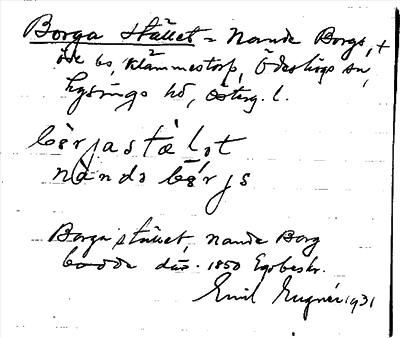 Borga stället = Nande Borgs, +
öde bs, Klämmestorp, Ödeshögs sn,
Lysings hd, Österg. l.
bör jastälət
nàndə bör js
Borga stället, Nande Borg
bodde där. 1850 Egobeskr.
Emil 1931